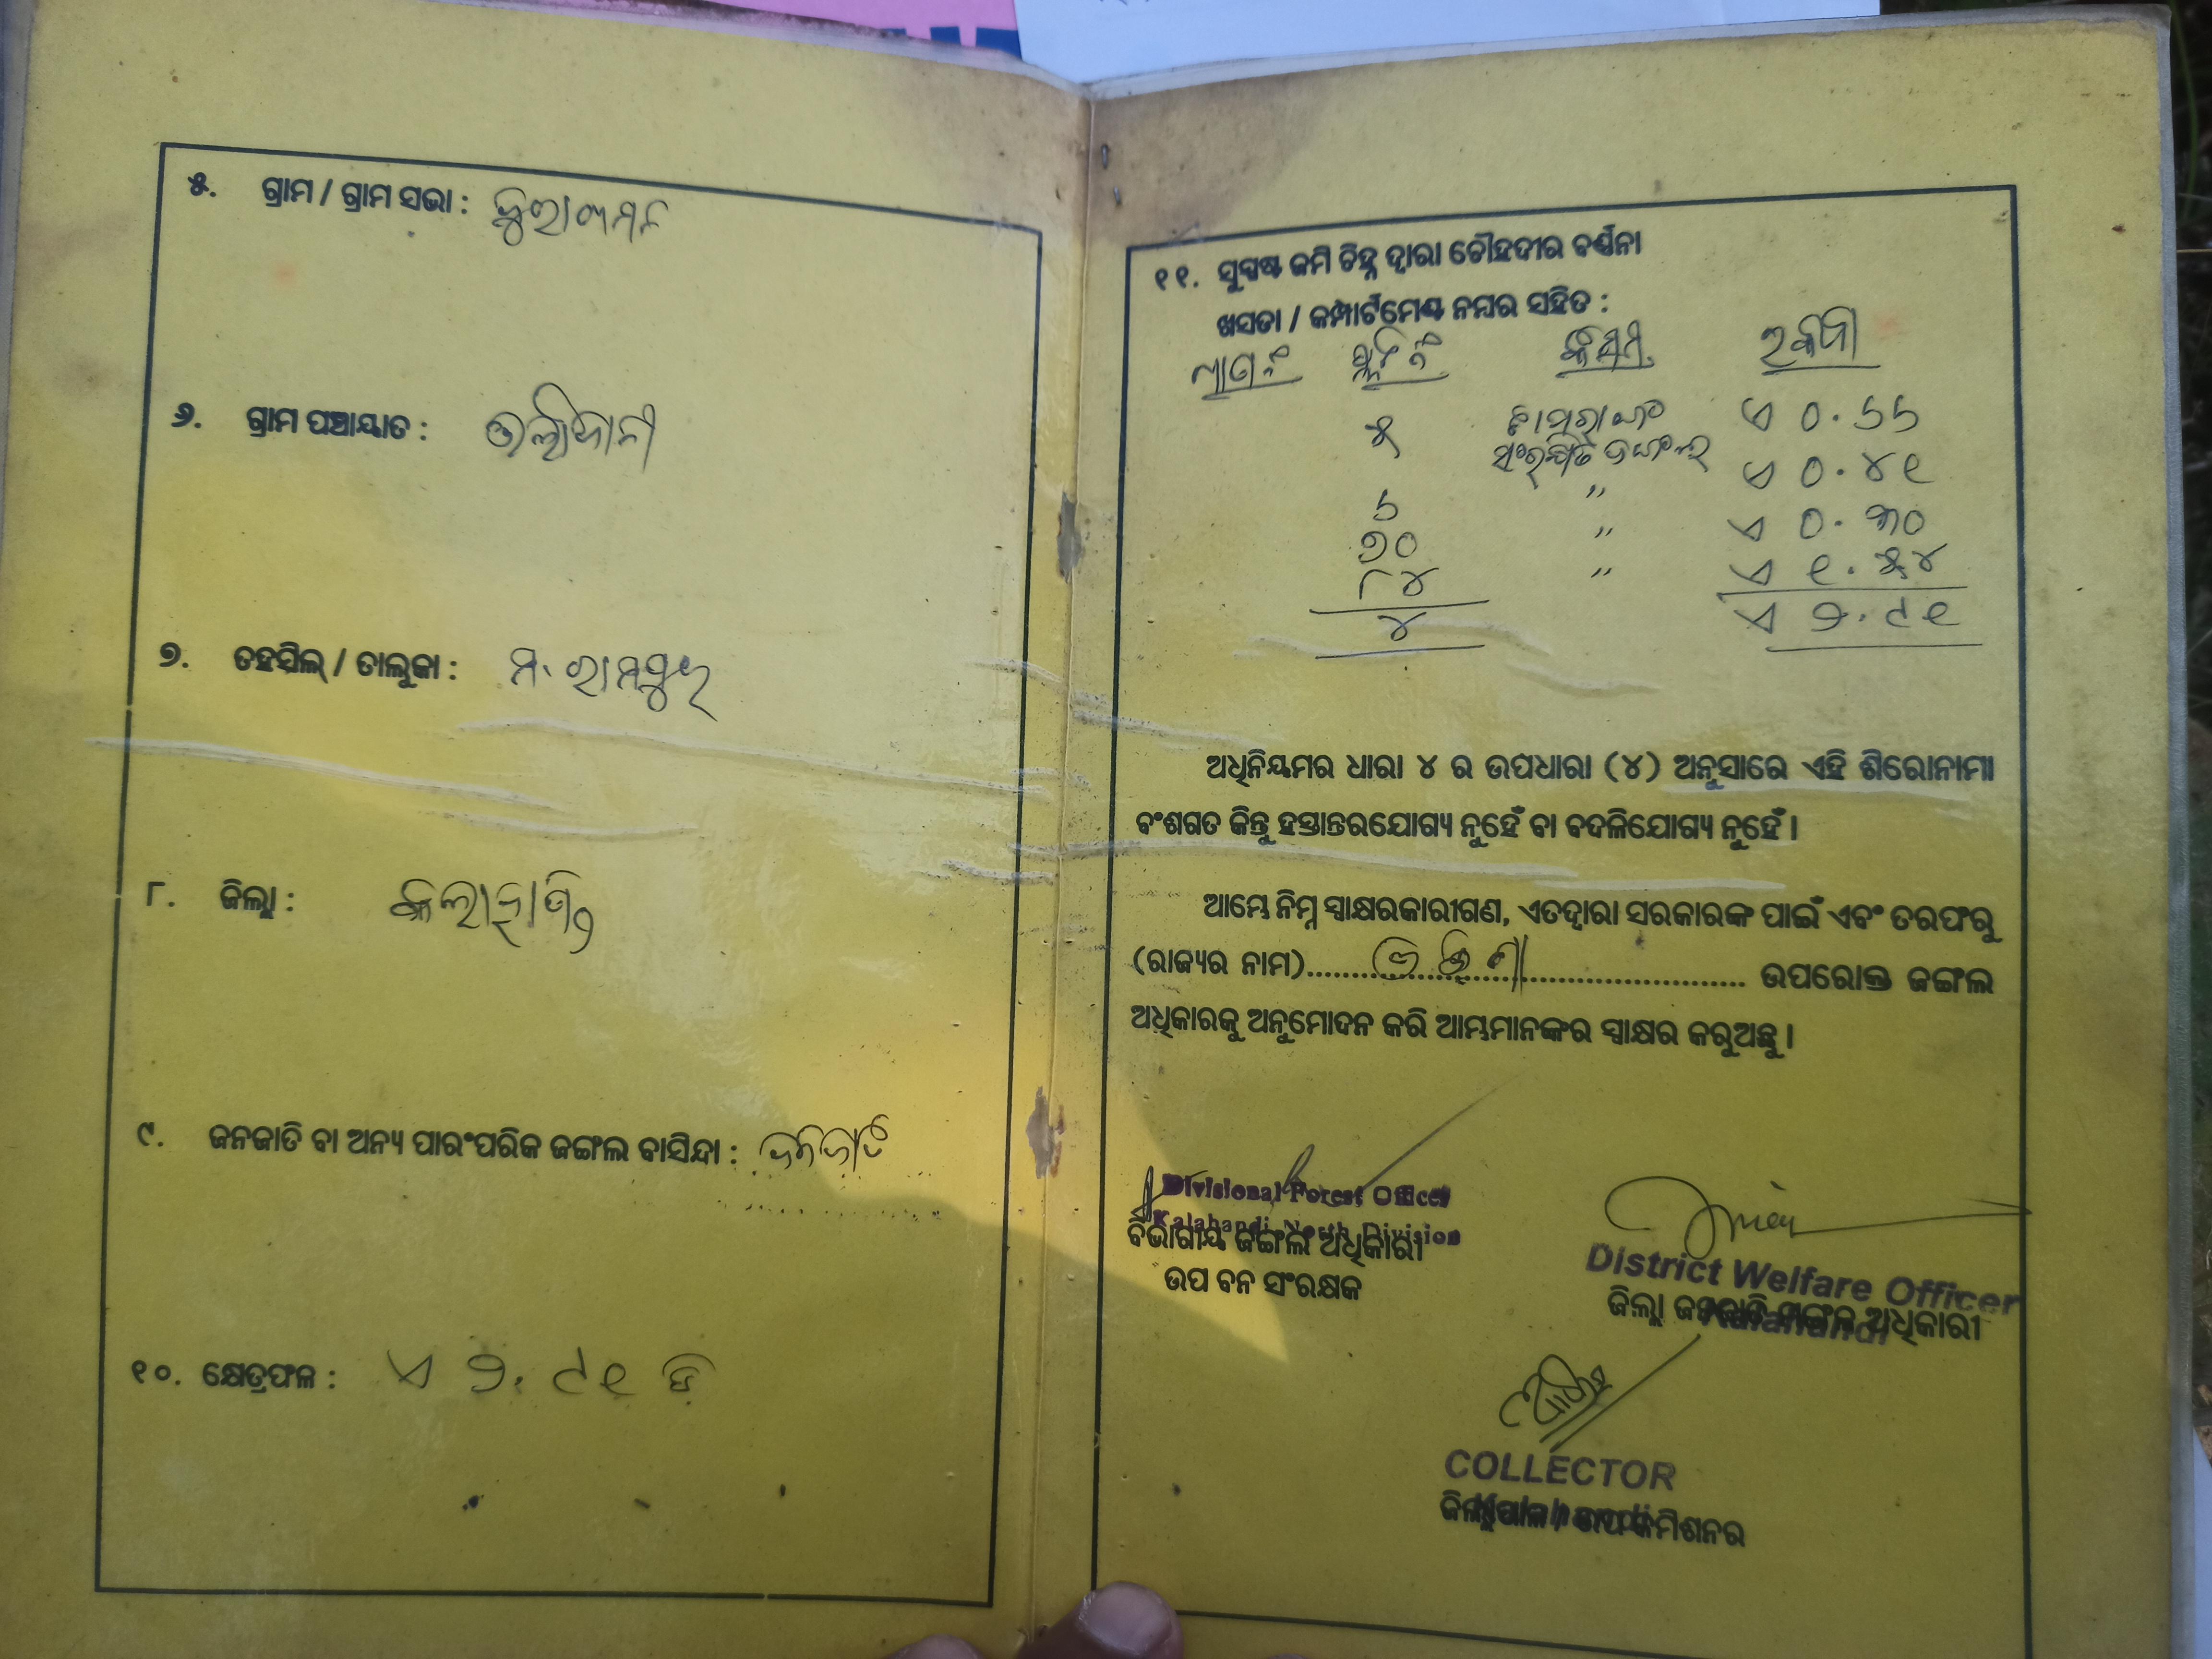 ୫. ଗ୍ରାମ / ଗ୍ରାମ ସଭା :
୬. ଗ୍ରାମ ପଞ୍ଚାୟାତ :
୭. ତହସିଲ୍ / ତାଲୁକା : ମ. ରାମପୁର
୮. ଜିଲ୍ଲା : କଳାହାଣ୍ଡି
୯. ଜନଜାତି ବା ଅନ୍ୟ ପାରଂପରିକ ଜଙ୍ଗଲ ବାସିନ୍ଦା : ଜନଜାତି
୧୦. କ୍ଷେତ୍ରଫଳ : ଏ ୨.୯୧ ଡି
୧୧. ସୁସ୍ପଷ୍ଟ ଜମି ଚିହ୍ନ ଦ୍ୱାରା ଚୌହଦୀର ବର୍ଣ୍ଣନା
ଖସଡା / କମ୍ପାର୍ଟମେଣ୍ଟ ନମ୍ବର ସହିତ :
ପ୍ଲଟ ନଂ କିସମ ରକବା
୫ ଏ ୦.୬୬
ସଂରକ୍ଷିତ ଜଙ୍ଗଲ ଏ ୦.୪୧
୬ " ଏ ୦.୩୦
୭୦ " ଏ ୧.୫୪
୮୪ "
୪ ଏ ୨.୯୧
ଅଧିନିୟମର ଧାରା ୪ ର ଉପଧାରା (୪) ଅନୁସାରେ ଏହି ଶିରୋନାମା
ବଂଶଗତ କିନ୍ତୁ ହସ୍ତାନ୍ତରଯୋଗ୍ୟ ନୁହେଁ ବା ବଦଳିଯୋଗ୍ୟ ନୁହେଁ ।
ଆମ୍ଭେ ନିମ୍ନ ସ୍ୱାକ୍ଷରକାରୀଗଣ, ଏତଦ୍ୱାରା ସରକାରଙ୍କ ପାଇଁ ଏବଂ ତରଫରୁ
(ରାଜ୍ୟର ନାମ)............ଓଡ଼ିଶା............ ଉପରୋକ୍ତ ଜଙ୍ଗଲ
ଅଧିକାରକୁ ଅନୁମୋଦନ କରି ଆମ୍ଭମାନଙ୍କର ସ୍ୱାକ୍ଷର କରୁଅଛୁ ।
Divisional Forest Officer
Kalahandi North Division
ବିଭାଗୀୟ ଜଙ୍ଗଲ ଅଧିକାରୀ
ଉପ ବନ ସଂରକ୍ଷକ
District Welfare Officer
Kalahandi
ଜିଲ୍ଲା ଜନଜାତି ମଙ୍ଗଳ ଅଧିକାରୀ
COLLECTOR
ଜିଲ୍ଲାପାଳ / ଉପ କମିଶନର